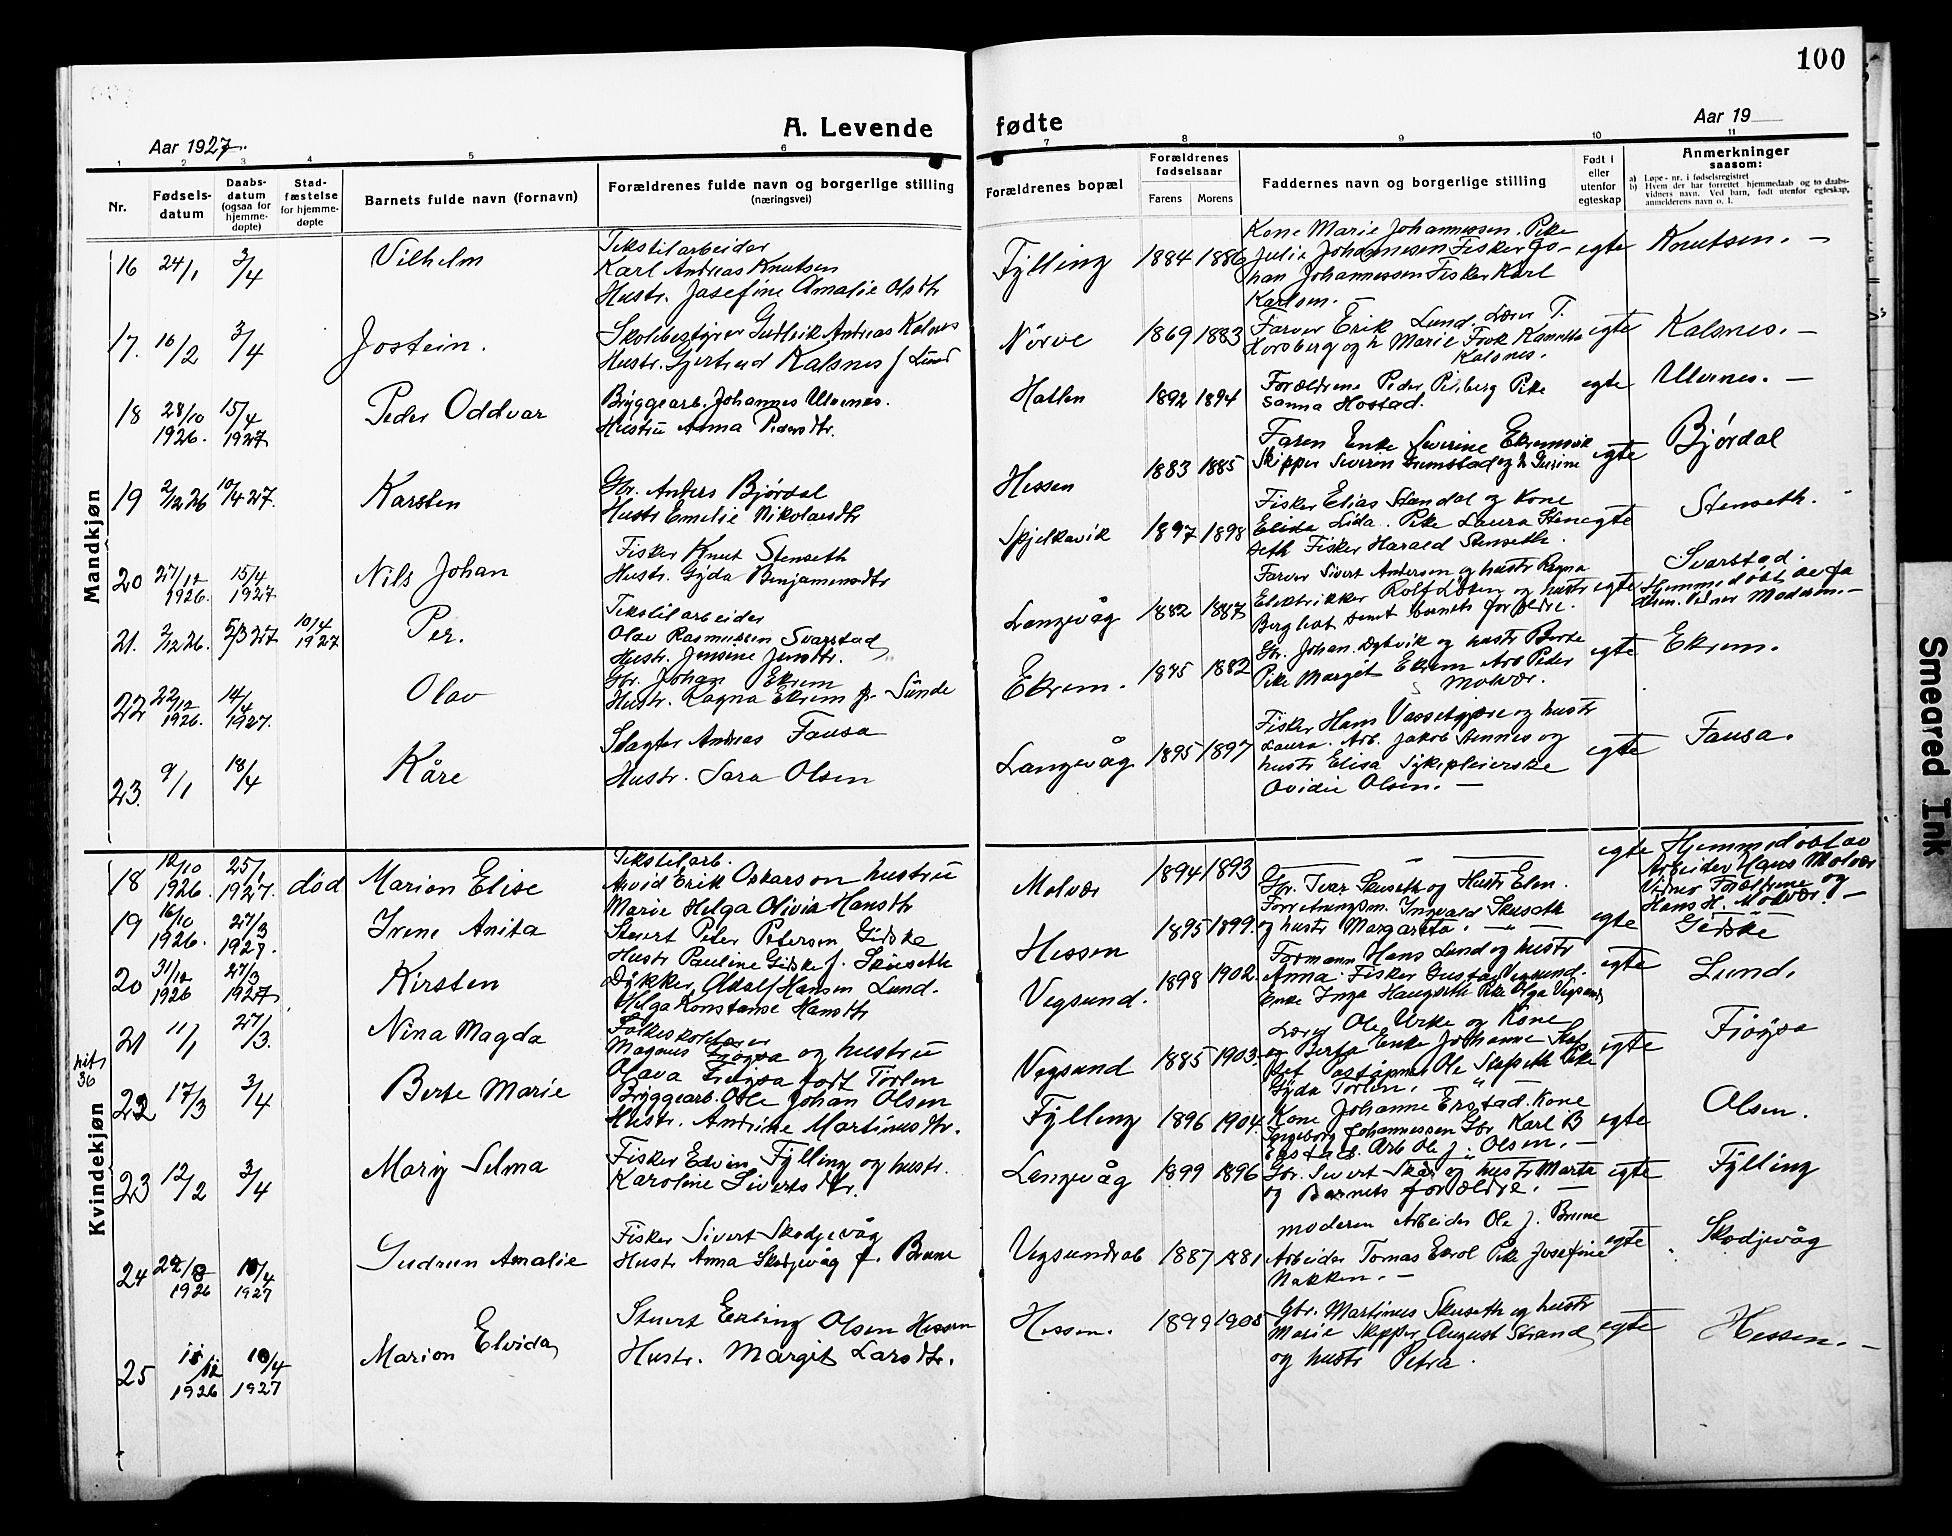 100
Aar 1927.
A. Levende
fødte
Aar 19
1 2 3 4 5 6 7 8 9 10 11
Nr.
Fødsels-
datum
Daabs-
datum
(ogsaa for
hjemme-
døpte)
Stad-
fæstelse
for hjemme-
døpte
Barnets fulde navn (fornavn)
Forældrenes fulde navn og borgerlige stilling
(næringsvei)
Forældrenes bopæl
Forældrenes
fødselsaar
Farens Morens
Faddernes navn og borgerlige stilling
Født i
eller
utenfor
egteskap
Anmerkninger
saasom:
a) Løpe-nr. i fødselsregistret
b) Hvem der har forrettet hjemmedaab og to daabs-
vidners navn. Ved barn, født utenfor egteskap,
anmelderens navn o. l.
Mandkjøn
16 24/1 3/4 Vilhelm
Tekstilarbeider
Karl Andreas Knutsen
Hustr. Josefine Amalie Olsdtr
Fylling 1884 1886
Kone Marie Johannessen. Pike
Julie Johannesen Fisker Jo-
han Johannessen Fisker Karl
Karlsen.
egte Knutsen. —
17. 16/2 3/4 Jostein.
Skolebestyrer Gudleik Andreas Kalsnes
Hustr. Gjertrud Kalsnes f Lund
Nörve 1869 1883
Farver Erik Lund. Lærer T.
Korsberg og h Marie Frøk
Kalsnes.
egte Kalsnes. —
18 28/10 1926. 15/4 1927 Peder Oddvar
Bryggearb. Johannes Ulvenes.
Hustru Anna Pedersdtr.
Hatlen 1892 1894
Forældrene Peder Pike
Sanna Hostad.
egte Ulvenes. —
19 2/12 26 10/4 27. Karsten
Gbr. Anders Bjørdal
Hustr Emelie Nikolaisdtr
Hessen 1883 1885
Faren Enke Severine Ekremsvik
Skipper Severin Grimstad og h Gurine
egte Bjørdal
20 27/12 1926. 15/4 1927 Nils Johan
Fisker Knut Stenseth
Hustr. Gyda Benjaminsdtr
Spjelkavik 1897 1898
Fisker Elias Standal og Kone
Elida Lida. Pike Laura Sten
seth Fisker Harald Stenseth.
egte Stenseth.
21. 2/12 26. 5/3 27 10/4 1927 Per.
Tekstilarbeider
Olav Rasmussen Svarstad
Hustr. Jensine Jensdtr.
Langevåg 1882 1887
Farver Sivert Andersen og hustr Ragna
Elektrikker Rolf og hustr
Berghot samt barnets forældre.
egte Svarstad.
Hjemmedöbt
22 22/12 1926. 14/4 1927. Olav
Gbr. Johan Ekrem
Hustr. Ragna Ekrem f. Sunde
Ekrem. 1882
Gbr. Johan og hustr Berte
Pike Margit Ekrem Arb Peder
Molvær.
egte Ekrem.
23. 9/1 18/4 Kåre
Slagter Andreas Fausa
Hustr. Sara Olsen
Langevåg 1895 1897
Fisker Hans og hustr
Laura. Arb. Jakob og
hustr Elisa Sykepleierske
Ovidie Olsen. —
egte Fausa.
Kvindekjøn
36
18 12/10 1926. 25/1 1927. død Marion Elise
Tekstilarb.
Arvid Erik Oskarson hustru
Marie Helga Olivia Hansdtr
Molvær 1894 1893
— „ —
egte Hjemmedöbt av
Arbeider Hans Molvær
Vidner Forældrene og
Hans H. Molvær. —
19 16/10 1926. 27/3 1927. Irene Anita
Stuert Peter Petersen Giske
Hustr Pauline Giske f. Skuseth
Hessen 1895 1899.
Gbr. Ivar Skuseth og Hustr Elen.
Forretningsm. Ingvald Skuseth
og hustr Margareta. — „ —
egte Giske
20 31/12 1926 27/3 1927 Kirsten
Dykker Adolf Hansen Lund.
Helga Konstanse Hansdtr
Vegsund. 1898 1902.
Formann Hans Lund og hustr
Anna. Fisker Gustav Vegsund.
Enke Inga Haugseth Pike Olga Vegsund
egte Lund.
21 11/1 27/3. Nina Magda
Folkeskolelærer
Magnus Fjögsa og hustru
Olava Fjögsa födt Törlen
Vegsund 1885 1903.
Lærer Ole Urke og Kone
Berta Enke Johanne
Ole Pike
Gyda Törlen. — „ —
egte Fjögsa
22 17/3 3/4 Berte Marie
Bryggearb. Ole Johan Olsen
Hustr. Andrine Martinusdtr.
Fylling 1896 1904.
Kone Johanne Erstad. Kone
Ingeborg Johannessen Gbr Karl B
Erstad. Arb Ole J. Olsen. —
egte Olsen.
23 12/2 3/4 Mary Selma
Fisker Edvin Fylling og hustr.
Karoline Sivertsdtr.
Langevåg 1899 1896
Gbr. Sivert Skår og hustr Marta
og Barnets forældre. —
egte Fylling
24 1926 10/4 1927 Gudrun Amalie
Fisker Sivert Skodjevåg
Hustr Anna Skodjevåg f. Brune
1887 1881
moderen Arbeider Ole J. Brune
Arbeider Tomas Pike Josefine
Nakken. —
egte Skodjevåg
25 1926 10/4 1927 Marion Elvida
Stuert Erling Olsen Hessen
Hustr. Margit Larsdtr.
Hessen. 1899 1905
Gbr. Martinus Skuseth og hustr
Marie Skipper August Strand
og hustr Petra.
egte Hessen. —
Smeared Ink